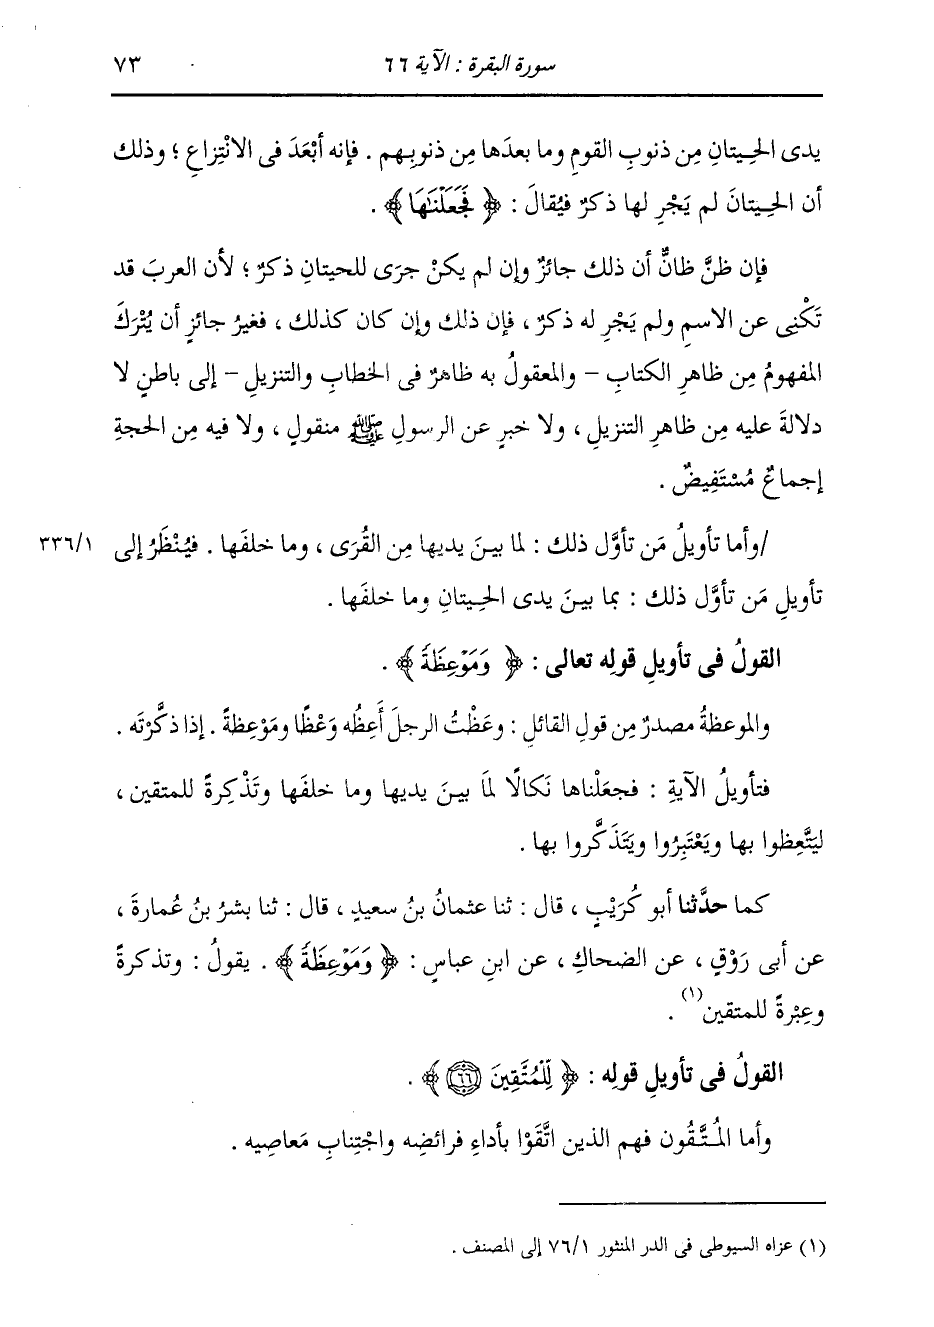 سورة البقرة : الآية ٦٦ ٧٣
يدى الحِيتانِ مِن ذنوبِ القومِ وما بعدَها مِن ذنوبِهم . فإنه أبْعَدَ فى الانْتِزاعِ ؛ وذلك
أن الحِيتانَ لم يَجْرِ لها ذكرٌ فيُقالَ : ﴿ فَجَعَلْنَٰهَا ﴾ .
فإن ظنَّ ظانٌّ أن ذلك جائزٌ وإن لم يكنْ جرَى للحيتانِ ذكرٌ ؛ لأن العربَ قد
تَكْنِى عن الاسمِ ولم يَجْرِ له ذكرٌ ، فإن ذلك وإن كان كذلك ، فغيرُ جائزٍ أن يُتْرَكَ
المفهومُ مِن ظاهرِ الكتابِ – والمعقولُ به ظاهرٌ فى الخطابِ والتنزيلِ – إلى باطنٍ لا
دلالةَ عليه مِن ظاهرِ التنزيلِ ، ولا خبرٍ عن الرسولِ ﷺ منقولٍ ، ولا فيه مِن الحجةِ
إجماعٌ مُسْتَفِيضٌ .
/وأما تأويلُ مَن تأوَّل ذلك : لما بينَ يديها مِن القُرَى ، وما خلفَها . فيُنْظَرُ إلى ٣٣٦/١
تأويلِ مَن تأوَّل ذلك : بما بينَ يدى الحِيتانِ وما خلفَها .
القولُ فى تأويلِ قولِه تعالى : ﴿ وَمَوْعِظَةً ﴾ .
والموعظةُ مصدرٌ مِن قولِ القائلِ : وعَظْتُ الرجلَ أَعِظُه وَعْظًا ومَوْعِظةً . إذا ذكَّرْتَه .
فتأويلُ الآيةِ : فجعَلْناها نَكالًا لمَا بينَ يديها وما خلفَها وتَذْكِرةً للمتقين ،
ليَتَّعِظوا بها ويَعْتَبِرُوا ويَتَذَكَّروا بها .
كما حدَّثنا أبو كُرَيْبٍ ، قال : ثنا عثمانُ بنُ سعيدٍ ، قال : ثنا بشرُ بنُ عُمارةَ ،
عن أبى رَوْقٍ ، عن الضحاكِ ، عن ابنِ عباسٍ : ﴿ وَمَوْعِظَةً ﴾ . يقولُ : وتذكرةً
وعِبْرةً للمتقين(١) .
القولُ فى تأويلِ قولِه : ﴿ لِّلْمُتَّقِينَ ٦٦ ﴾ .
وأما المُتَّقُون فهم الذين اتَّقَوْا بأداءِ فرائضِه واجْتِنابِ مَعاصِيه .
(١) عزاه السيوطى فى الدر المنثور ٧٦/١ إلى المصنف .